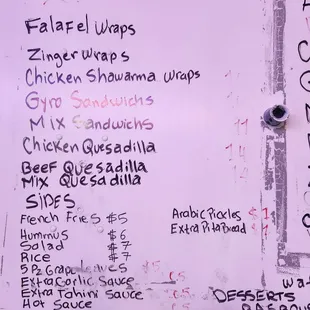 Falafel Wraps
Zinger Wraps
Chicken Shawarma Wraps
Gyro Sandwichs
Mix Sandwichs 11
Chicken Quesadilla 14
Beef Quesadilla
Mix Quesadilla
SIDES
French Fries $5
Hummus $6
Salad $7
Rice $7
5 Pz Grape Leaves $5
Extra Garlic Sauce
Extra Tahini Sauce
Hot Sauce
Arabic Pickles $1
Extra Pita Bread
DESSERTS